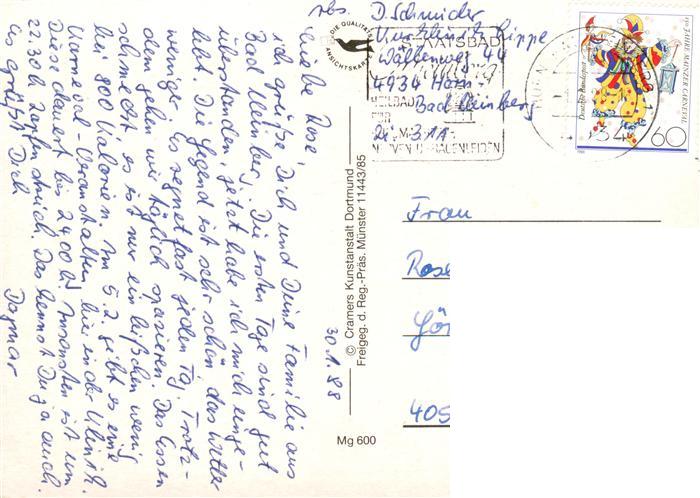 Abs. D. Schmider
Kurklinik Lippe
Wällenweg 44
4934 Horn-
Bad Meinberg
Zi. 311
DIE QUALITÄTS
ANSICHTSKARTE
STAATSBAD
HEILBAD
FÜR
NERVEN FRAUENLEIDEN
4934
600 JAHRE MAINZER CARNEVAL
Deutsche Bundespost
60
1988
Liebe Rose,
ich grüße Dich und Deine Familie aus
Bad Meinberg. Die ersten Tage sind gut
überstanden, jetzt habe ich mich einge-
lebt. Die Gegend ist sehr schön, das Wetter
weniger. Es regnet fast jeden Tag. Trotz-
dem gehen wir täglich spazieren. Das Essen
schmeckt, es ist nur ein bißchen wenig
bei 800 Kalorien. Am 5.2. gibt es eine
Karneval-Veranstaltung hier in der Klinik.
Diese dauert bis 24.00 h. Ansonsten ist um
22.30 h Zapfenstreich. Das kennst Du ja auch.
Es grüßt Dich
Dagmar
30.1.88
© Cramers Kunstanstalt Dortmund
Freigeg. d. Reg.-Präs. Münster 11443/85
Mg 600
Frau
Rose
Gör
405